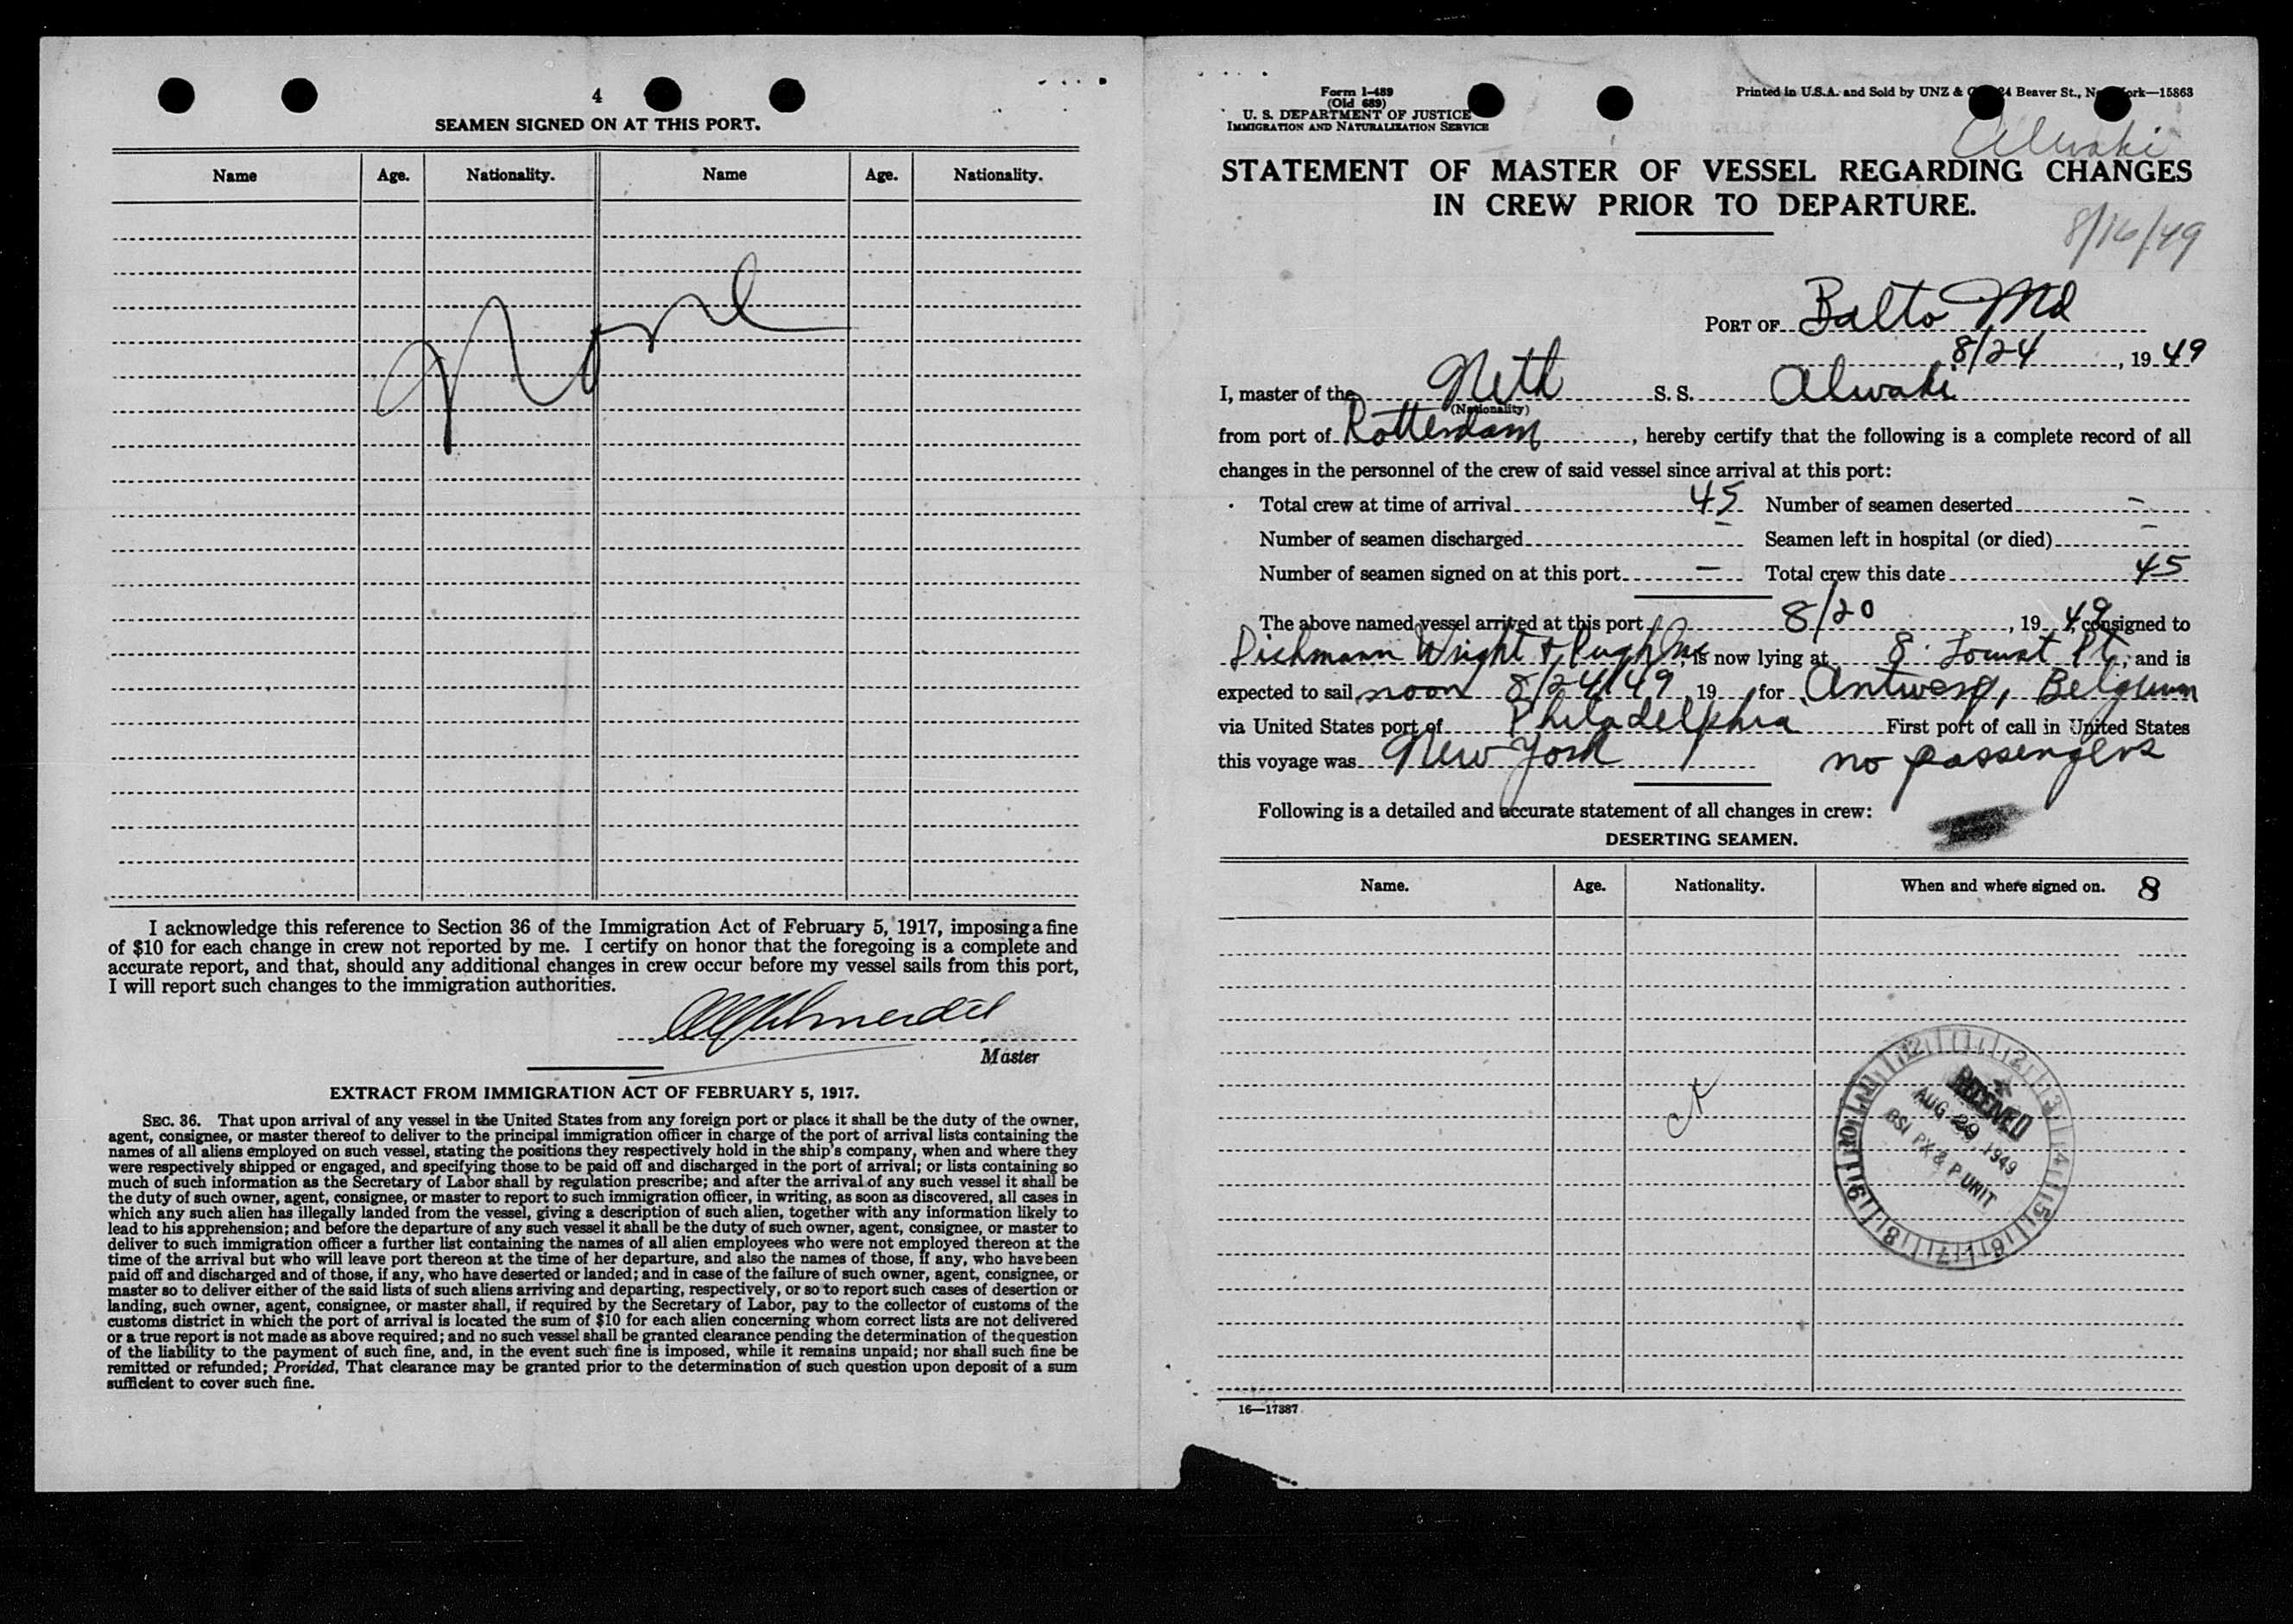 4
SEAMEN SIGNED ON AT THIS PORT.
Name Age. Nationality. Name Age. Nationality.
None
I acknowledge this reference to Section 36 of the Immigration Act of February 5, 1917, imposing a fine
of $10 for each change in crew not reported by me. I certify on honor that the foregoing is a complete and
accurate report, and that, should any additional changes in crew occur before my vessel sails from this port,
I will report such changes to the immigration authorities.
Master
EXTRACT FROM IMMIGRATION ACT OF FEBRUARY 5, 1917.
SEC. 36. That upon arrival of any vessel in the United States from any foreign port or place it shall be the duty of the owner,
agent, consignee, or master thereof to deliver to the principal immigration officer in charge of the port of arrival lists containing the
names of all aliens employed on such vessel, stating the positions they respectively hold in the ship's company, when and where they
were respectively shipped or engaged, and specifying those to be paid off and discharged in the port of arrival; or lists containing so
much of such information as the Secretary of Labor shall by regulation prescribe; and after the arrival of any such vessel it shall be
the duty of such owner, agent, consignee, or master to report to such immigration officer, in writing, as soon as discovered, all cases in
which any such alien has illegally landed from the vessel, giving a description of such alien, together with any information likely to
lead to his apprehension; and before the departure of any such vessel it shall be the duty of such owner, agent, consignee, or master to
deliver to such immigration officer a further list containing the names of all alien employees who were not employed thereon at the
time of the arrival but who will leave port thereon at the time of her departure, and also the names of those, if any, who have been
paid off and discharged and of those, if any, who have deserted or landed; and in case of the failure of such owner, agent, consignee, or
master so to deliver either of the said lists of such aliens arriving and departing, respectively, or so to report such cases of desertion or
landing, such owner, agent, consignee, or master shall, if required by the Secretary of Labor, pay to the collector of customs of the
customs district in which the port of arrival is located the sum of $10 for each alien concerning whom correct lists are not delivered
or a true report is not made as above required; and no such vessel shall be granted clearance pending the determination of the question
of the liability to the payment of such fine, and, in the event such fine is imposed, while it remains unpaid; nor shall such fine be
remitted or refunded; Provided, That clearance may be granted prior to the determination of such question upon deposit of a sum
sufficient to cover such fine.
Form I-489
(Old 689)
U. S. DEPARTMENT OF JUSTICE
IMMIGRATION AND NATURALIZATION SERVICE
Printed in U.S.A. and Sold by UNZ & Beaver St., 15863
Alwaki
STATEMENT OF MASTER OF VESSEL REGARDING CHANGES
IN CREW PRIOR TO DEPARTURE.
8/16/49
PORT OF Balto Md
8/24, 1949
I, master of the Neth S. S. Alwaki
(Nationality)
from port of Rotterdam, hereby certify that the following is a complete record of all
changes in the personnel of the crew of said vessel since arrival at this port:
Total crew at time of arrival 45 Number of seamen deserted -
Number of seamen discharged - Seamen left in hospital (or died) -
Number of seamen signed on at this port - Total crew this date 45
The above named vessel arrived at this port 8/20, 1949, consigned to
Dichmann Wright & Pugh Inc, is now lying at 8 Locust Pt, and is
expected to sail noon 8/24/49, 19 , for Antwerp, Belgium
via United States port of Philadelphia First port of call in United States
this voyage was New York no passengers
Following is a detailed and accurate statement of all changes in crew:
DESERTING SEAMEN.
Name. Age. Nationality. When and where signed on. 8
RECEIVED
AUG 29, 1949
BSI PX & P UNIT
16—17387